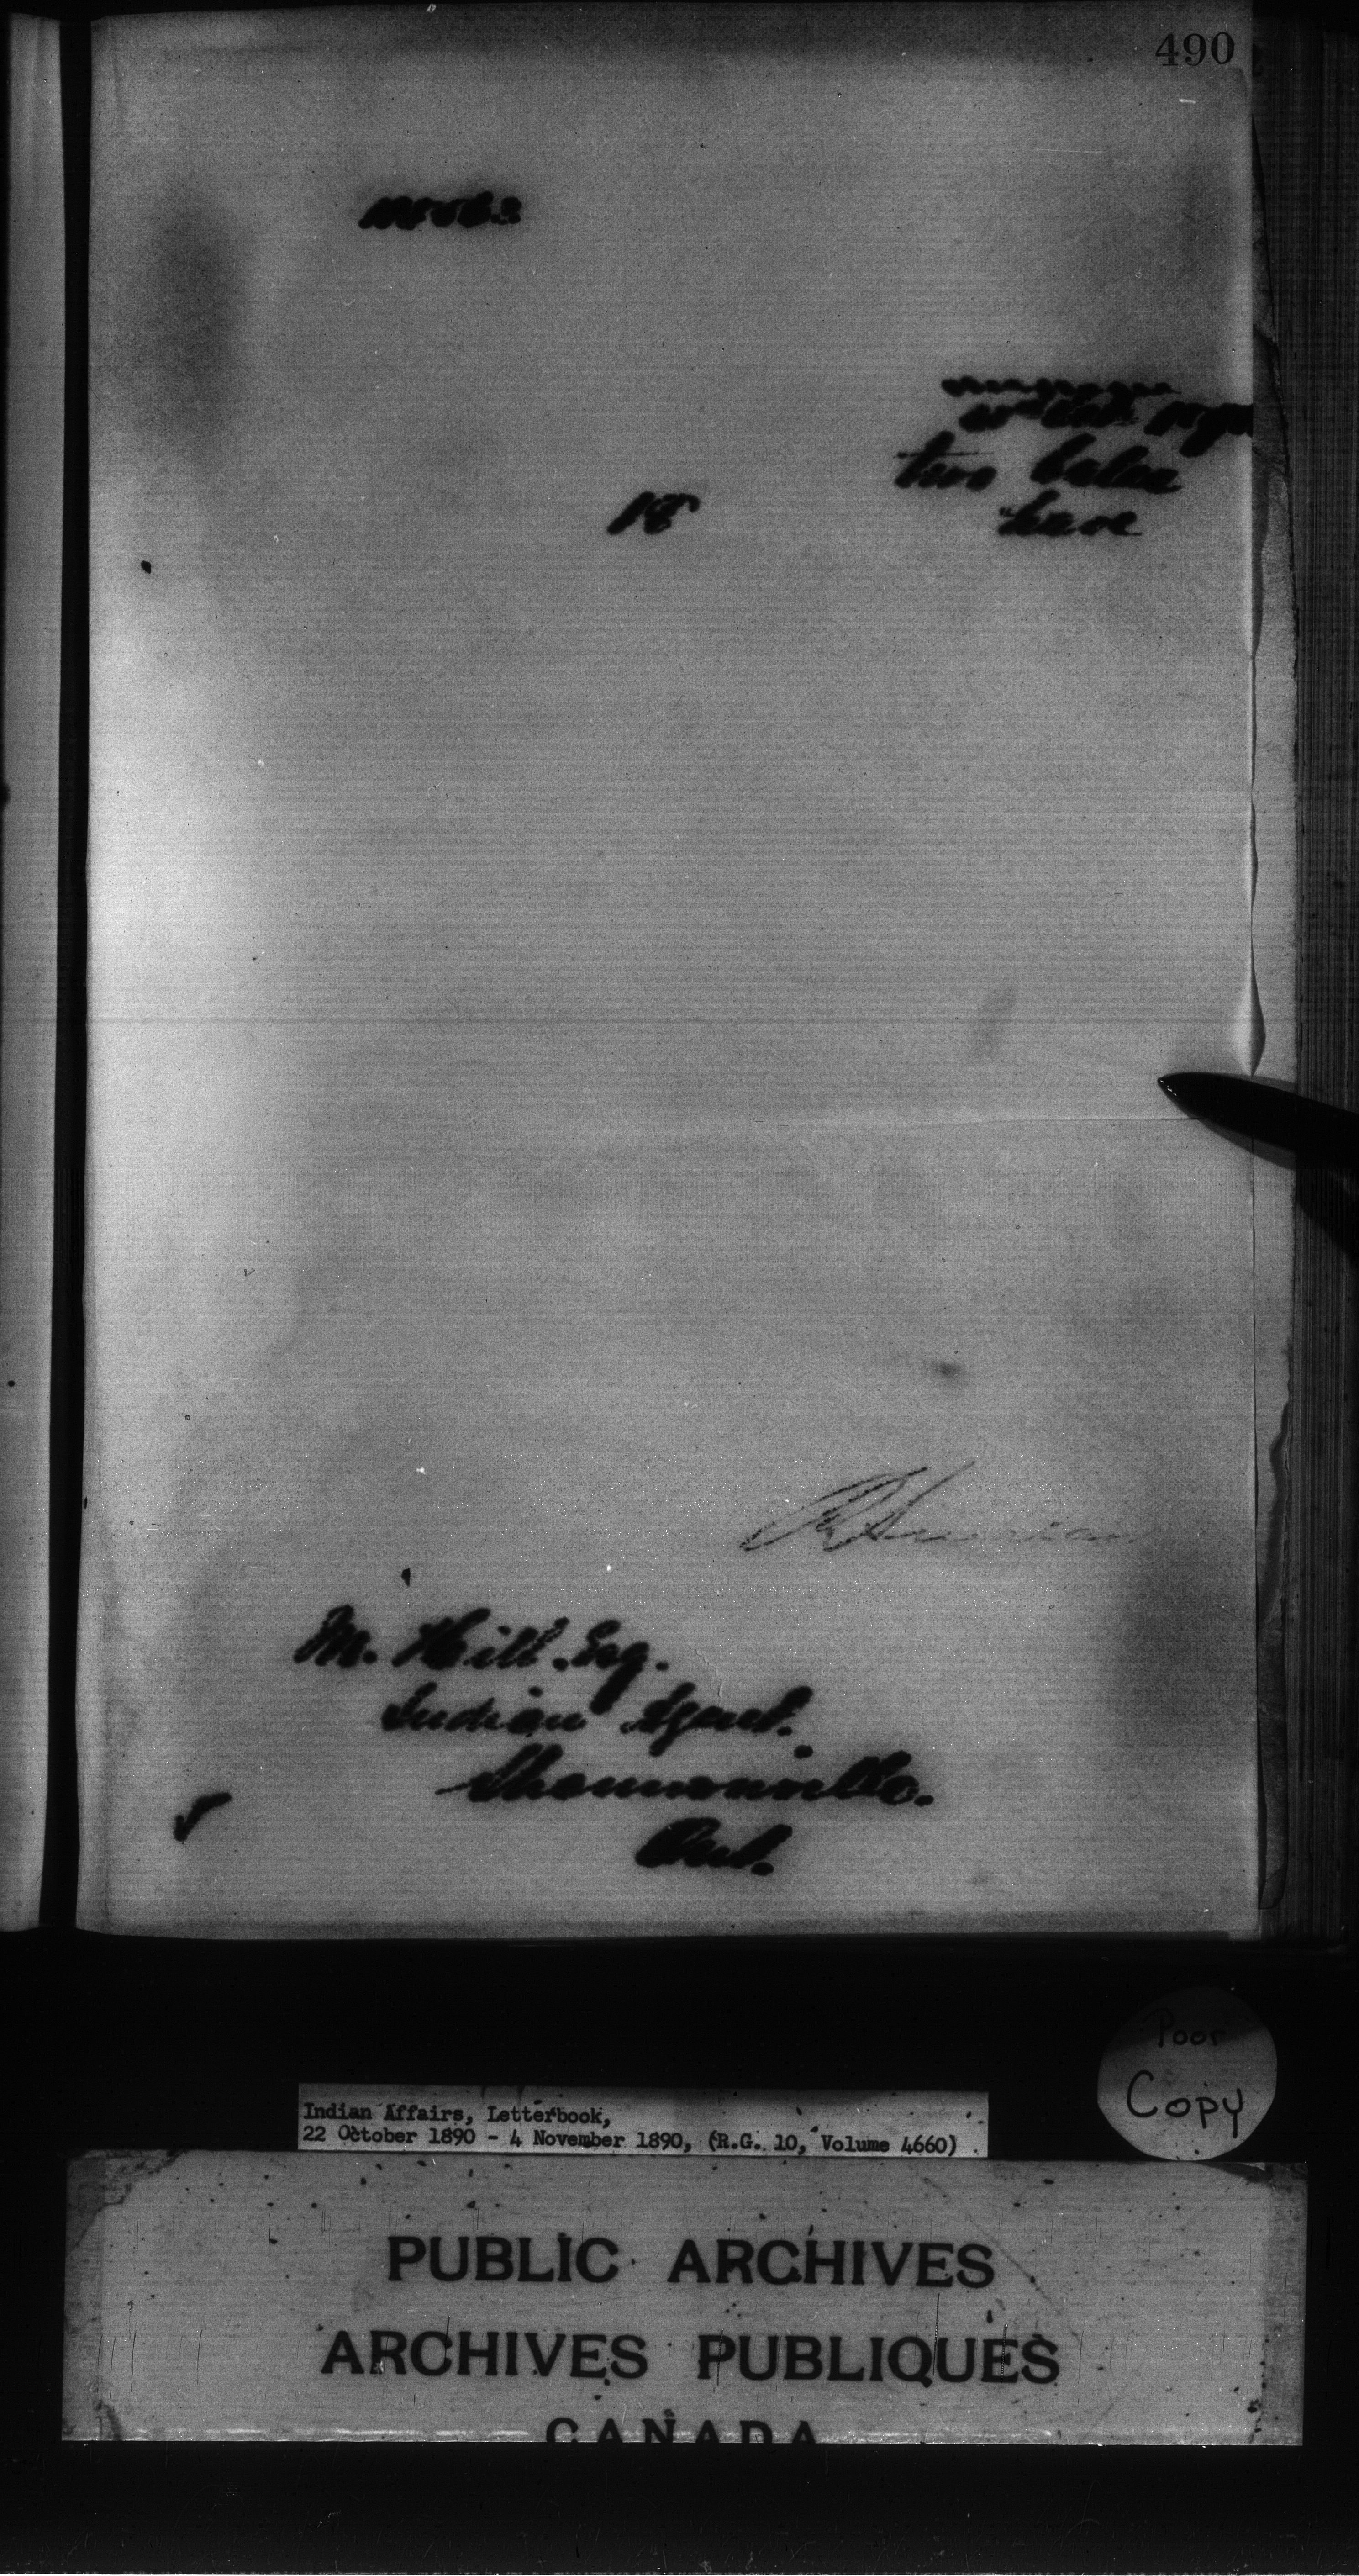 490
two
have
18
M. Hill. Esq.
Indian Agent.
Shannonville.
Ont.
Poor
Copy
Indian Affairs, Letterbook,
22 October 1890 - 4 November 1890, (R.G. 10, Volume 4660)
PUBLIC ARCHIVES
ARCHIVES PUBLIQUES
CANADA